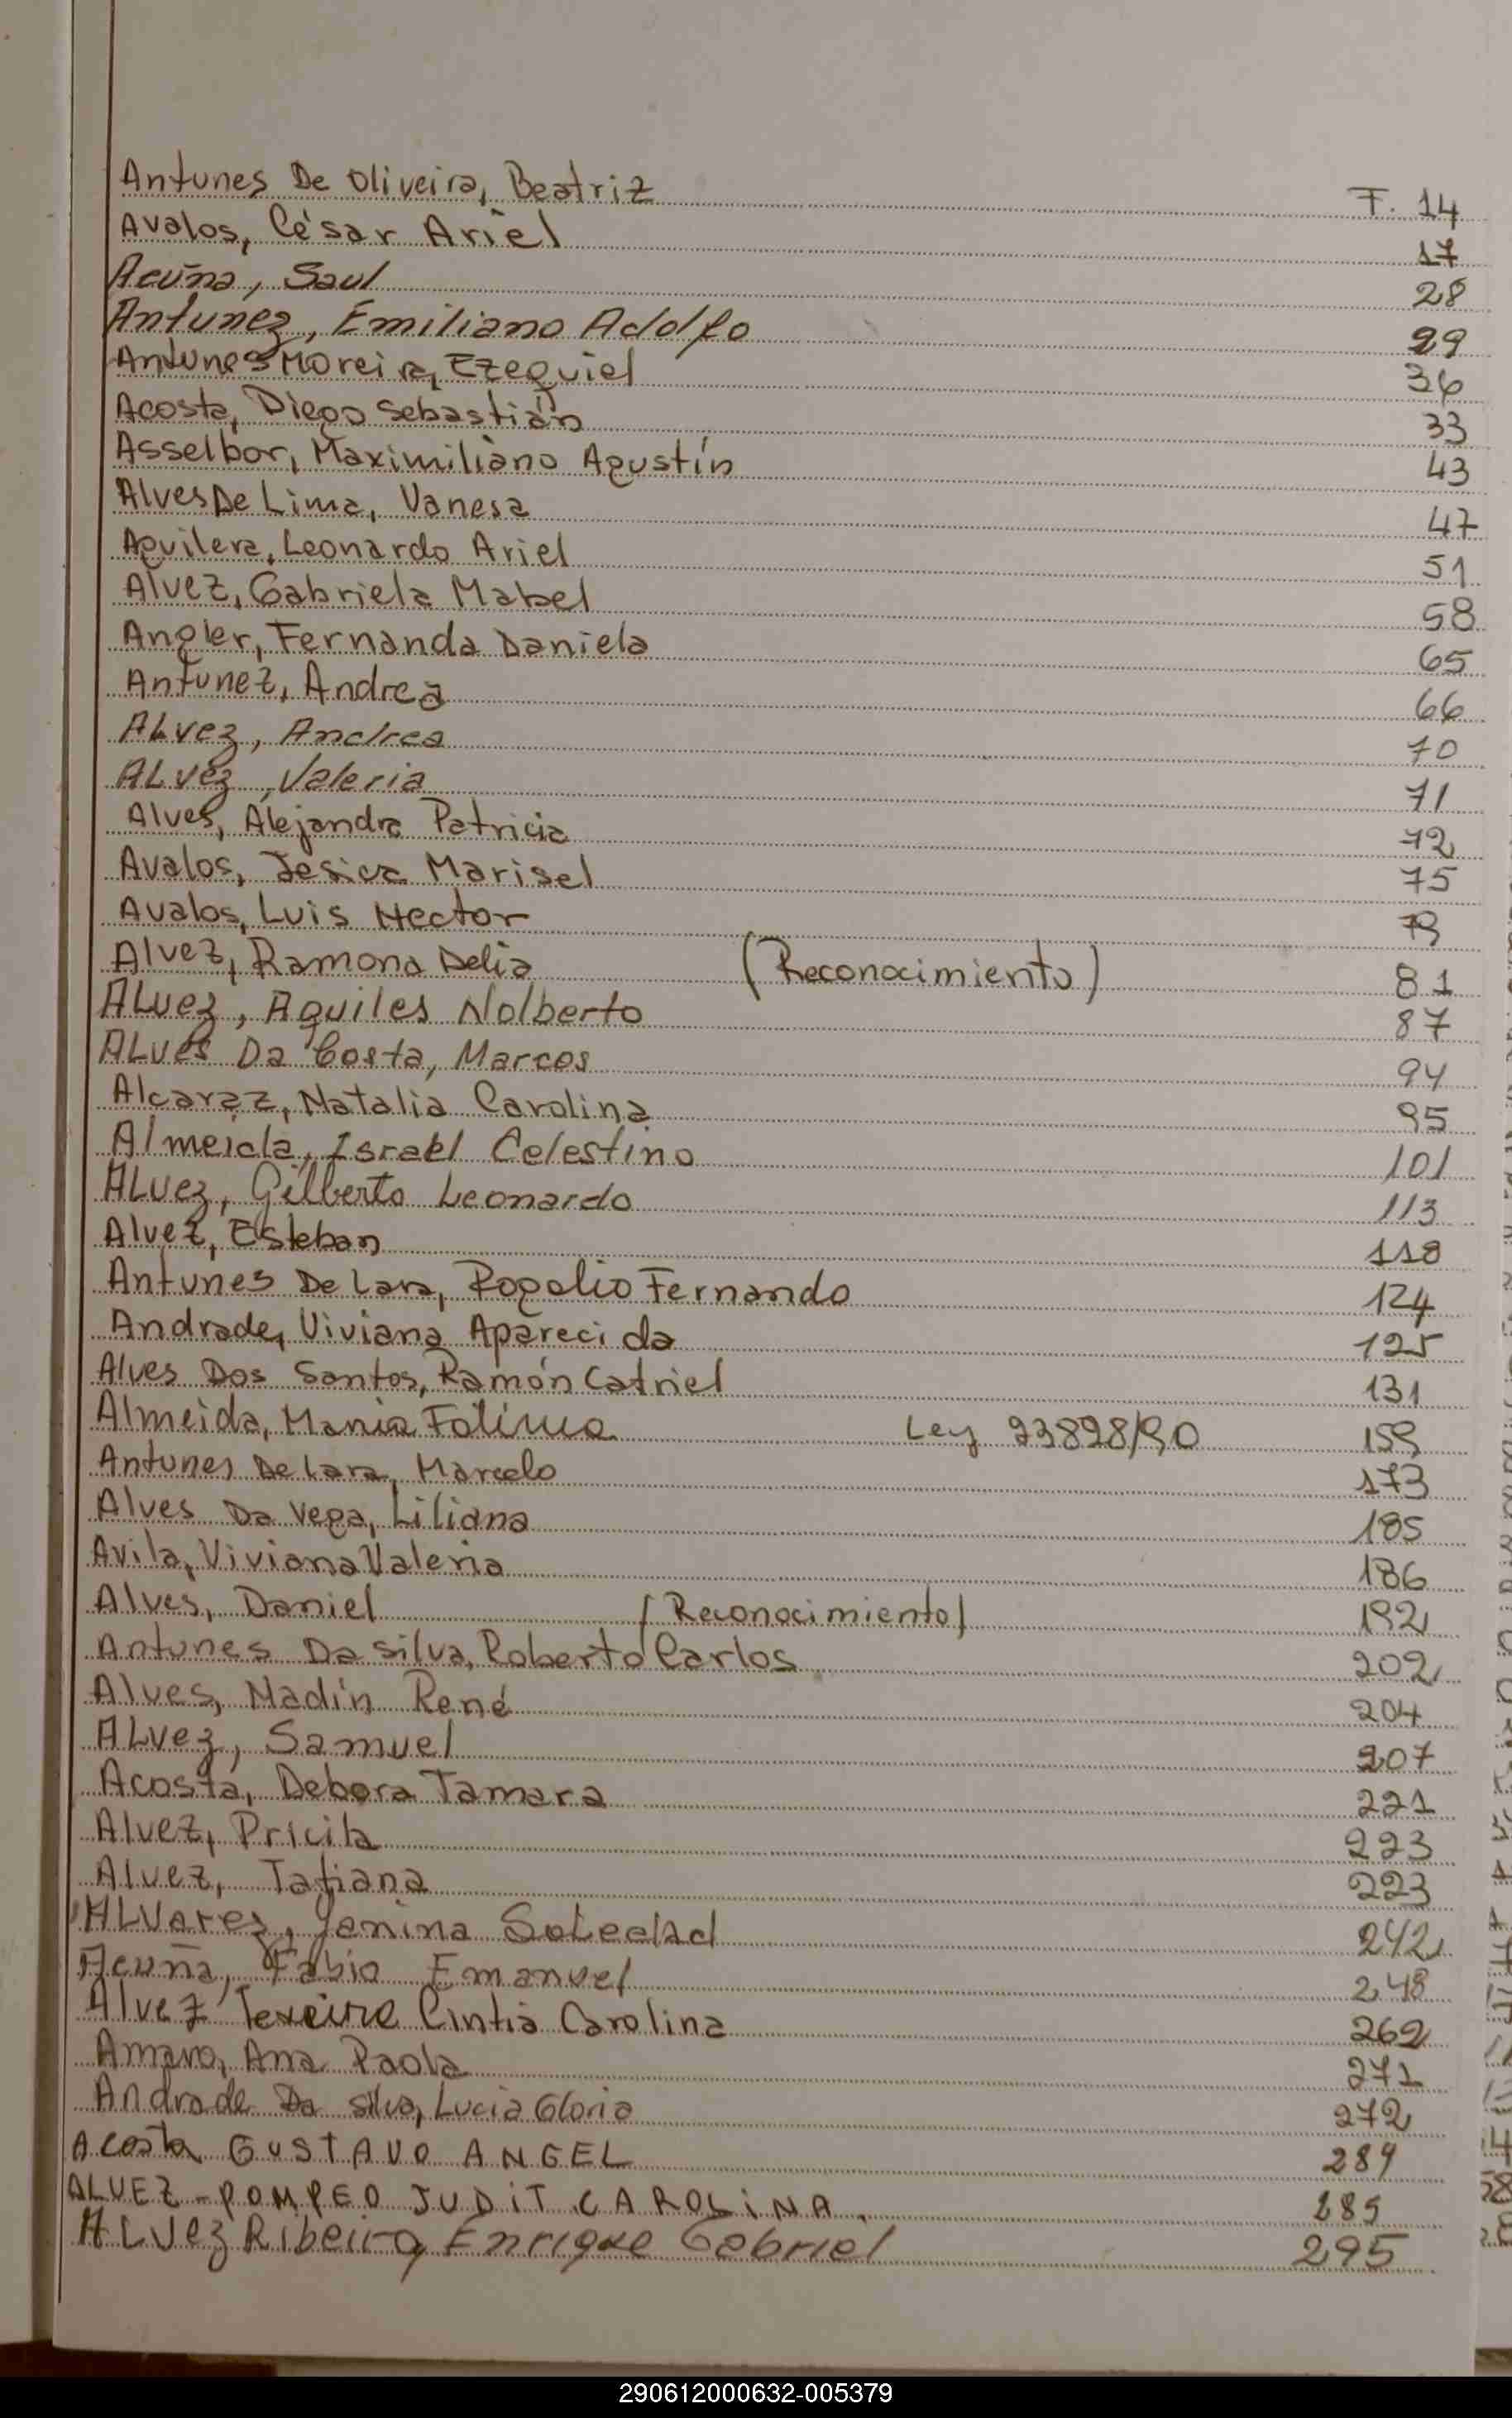 Antunes De Oliveira, Beatriz F. 14
Avalos, César Ariel 17
Acuña, Saul 28
Antunez, Emiliano Adolfo 29
Antunes Moreira, Ezequiel 36
Acosta, Diego Sebastián 33
Asselbor, Maximiliano Agustín 43
Alves De Lima, Vanesa 47
Aguilera, Leonardo Ariel 51
Alvez, Gabriela Mabel 58
Angler, Fernanda Daniela 65
Antunez, Andrea 66
ALvez, Andrea 70
ALvez, Valeria 71
Alves, Alejandra Patricia 72
Avalos, Jesica Marisel 75
Avalos, Luis Hector
Alvez, Ramona Delia (Reconocimiento) 81
ALvez, Aquiles Nolberto 87
ALves Da Costa, Marcos 94
Alcaraz, Natalia Carolina 95
Almeida, Israel Celestino 101
ALvez, Gilberto Leonardo 113
Alvez, Esteban 118
Antunes De Lara, Rogelio Fernando 124
Andrade, Viviana Aparecida 125
Alves Dos Santos, Ramón Catriel 131
Almeida, Maria Fatima Ley 23898/90 159
Antunes De Lara, Marcelo 173
Alves Da Vega, Liliana 185
Avila, Viviana Valeria 186
Alves, Daniel (Reconocimiento) 192
Antunes Da Silva, Roberto Carlos 202
Alves, Nadin René 204
ALvez, Samuel 207
Acosta, Debora Tamara 221
Alvez, Pricila 223
Alvez, Tatiana 223
ALvarez, Yanina Soledad 242
Acuña, Fabio Emanuel 248
Alvez Texeira Cintia Carolina 262
Amaro, Ana Paola 271
Andrade Da Silva, Lucia Gloria 272
Acosta GUSTAVO ANGEL 284
ALVEZ - POMPEO JUDIT CAROLINA. 285
ALvez Ribeiro, Enrique Gabriel 295
290612000632-005379